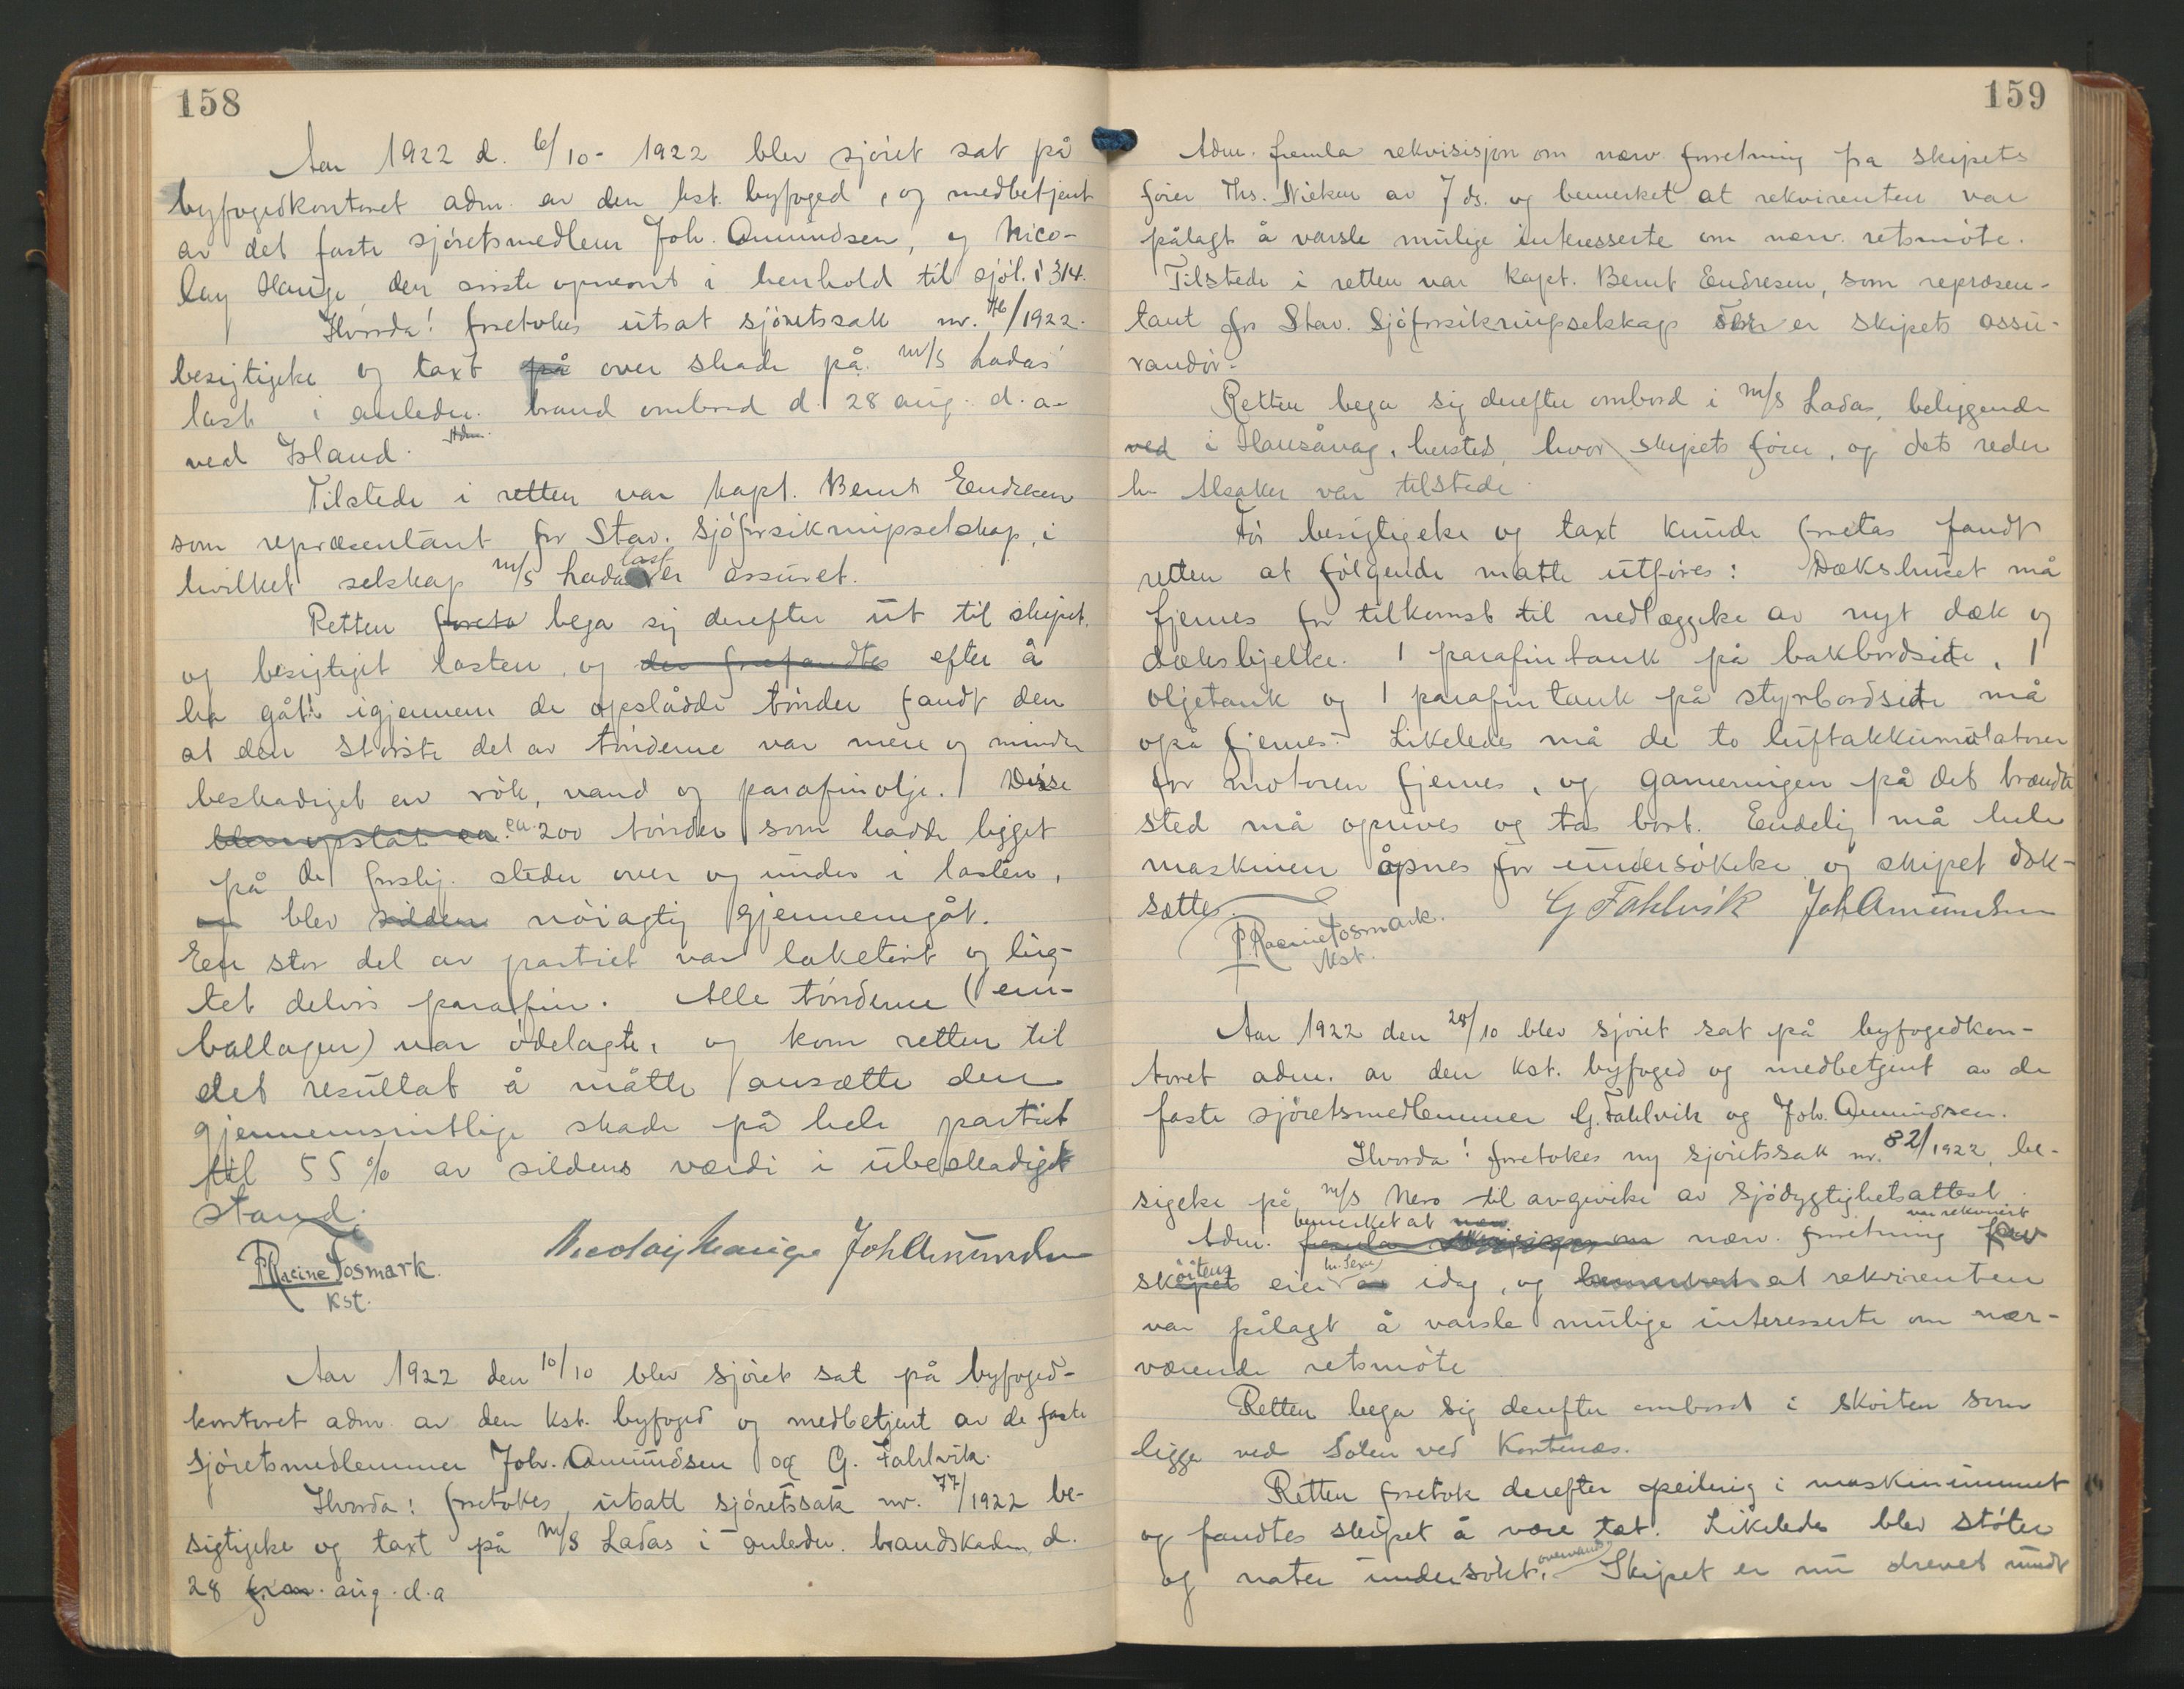 158
Aar 1922 d. 6/10 - 1922 blev sjöret sat på
byfogedkontoret adm. av den kst. byfoged, og medbetjent
av det faste sjöretsmedlem Joh. Amundsen, og Nico-
lay Hauge, den siste opnevnt i henhold til sjöl. § 314.
Hvorda! foretokes utsat sjöretssak nr. 76/1922.
besigtigelse og taxt på over skade på m/s Ladas'
last i anledn. brand ombord d. 28 aug. d. a.
ved Island. Adm.
Tilstede i retten var kapt. Bernt Endresen
som repræsentant for Stav. Sjöforsikringsselskap, i
hvilket selskap m/s Ladas last er assuret.
Retten foreto bega sig derefter ut til skipet,
og besigtiget lasten, og der forefandtes efter å
ha gått igjennem de opslådde tönder fandt den
at den störste del av tönderne var mere og mindre
beskadiget av rök, vand og parafinolje. Disse
blev opslåt ca. ca. 200 tönder som hadde ligget
på de forskj. steder over og under i lasten,
og blev silden nöiagtig gjennemgåt.
En stor del av partiet var laketört og lug-
tet delvis parafin. Alle tönderne (em-
ballagen) var ödelagte, og kom retten til
det resultat å måtte ansætte den
gjennemsnitlige skade på hele partiet
til 55 % av sildens værdi i ubeskadiget
stand.
P. Racine Fosmark. Nicolay Hauge Joh Amundsen
Kst.
Aar 1922 den 10/10 blev sjöret sat på byfoged-
kontoret adm. av den kst. byfoged og medbetjent av de faste
sjöretsmedlemmer Joh. Amundsen og G. Fahlvik.
Hvorda: foretokes utsatt sjöretssak nr. 77/1922 be-
sigtigelse og taxt på M/S Ladas i anledn. brandskaden d.
28 aug. d. a
159
Adm. fremla rekvisisjon om nærv. forretning fra skipets
förer Ths. Nielsen av 7 ds. og bemerket at rekvirenten var
pålagt å varsle mulige interesserte om nærv. retsmöte.
Tilstede i retten var kapt. Bernt Endresen, som repræsen-
tant for Stav. Sjöforsikringselskap som er skipets assu-
randör.
Retten bega sig derefter ombord i M/S Ladas, beliggende
ved i Hansåvåg, hersted, hvor skipets förer, og dets reder
hr Alsaker var tilstede.
För besigtigelse og taxt kunde foretas fandt
retten at fölgende måtte utföres: Dækshuset må
fjernes for tilkomst til nedlæggelse av nyt dæk og
dæksbjelke. 1 parafintank på bakbordside, 1
oljetank og 1 parafintank på styrbordside må
også fjernes. Likeledes må de to luftakkumulatorer
for motoren fjernes, og garneringen på det brændte
sted må oprives og tas bort. Endelig må hele
maskinen åpnes for undersökelse og skipet dok-
sættes. G Fahlvik Joh Amundsen
P. Racine Fosmark.
Kst.
Aar 1922 den 28/10 blev sjöret sat på byfogedkon-
toret adm. av den kst. byfoged og medbetjent av de
faste sjöretsmedlemmer G. Fahlvik og Joh. Amundsen.
Hvorda! foretokes ny sjöretssak nr. 82/1922, be-
sigelse på m/s Nero til avgivelse av sjödygtighetsattest.
bemerket at nærv. var rekvirert
Adm. fremla rekvisisjon om nærv. forretning fra
sköitens eier av idag, og bemerket at rekvirenten
var pålagt å varsle mulige interesserte om nær-
værende retsmöte
Retten bega sig derefter ombord i sköiten som
ligge ved Solen ved Kortenæs.
Retten foretok derefter peiling i maskinrummet
og fandtes skipet å være tæt. Likeledes blev stöter
og nater undersökt. overvands Skipet er nu drevet rundt